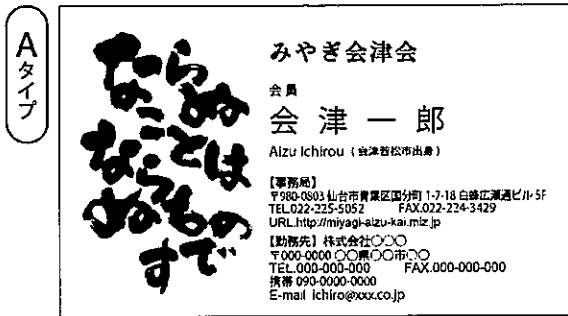 Aタイプ
ならぬ
ことは
ならぬもの
です
みやぎ会津会
会員
会津一郎
Aizu Ichirou（会津若松市出身）
【事務局】
〒980-0803 仙台市青葉区国分町 1-7-18 白蜂広瀬通ビル 5F
TEL.022-225-5052 FAX.022-224-3429
URL.http://miyagi-aizu-kai.miz.jp
【勤務先】株式会社〇〇〇
〒000-0000 〇〇県〇〇市〇〇
TEL.000-000-000 FAX.000-000-000
携帯 090-0000-0000
E-mail ichiro@xxx.co.jp